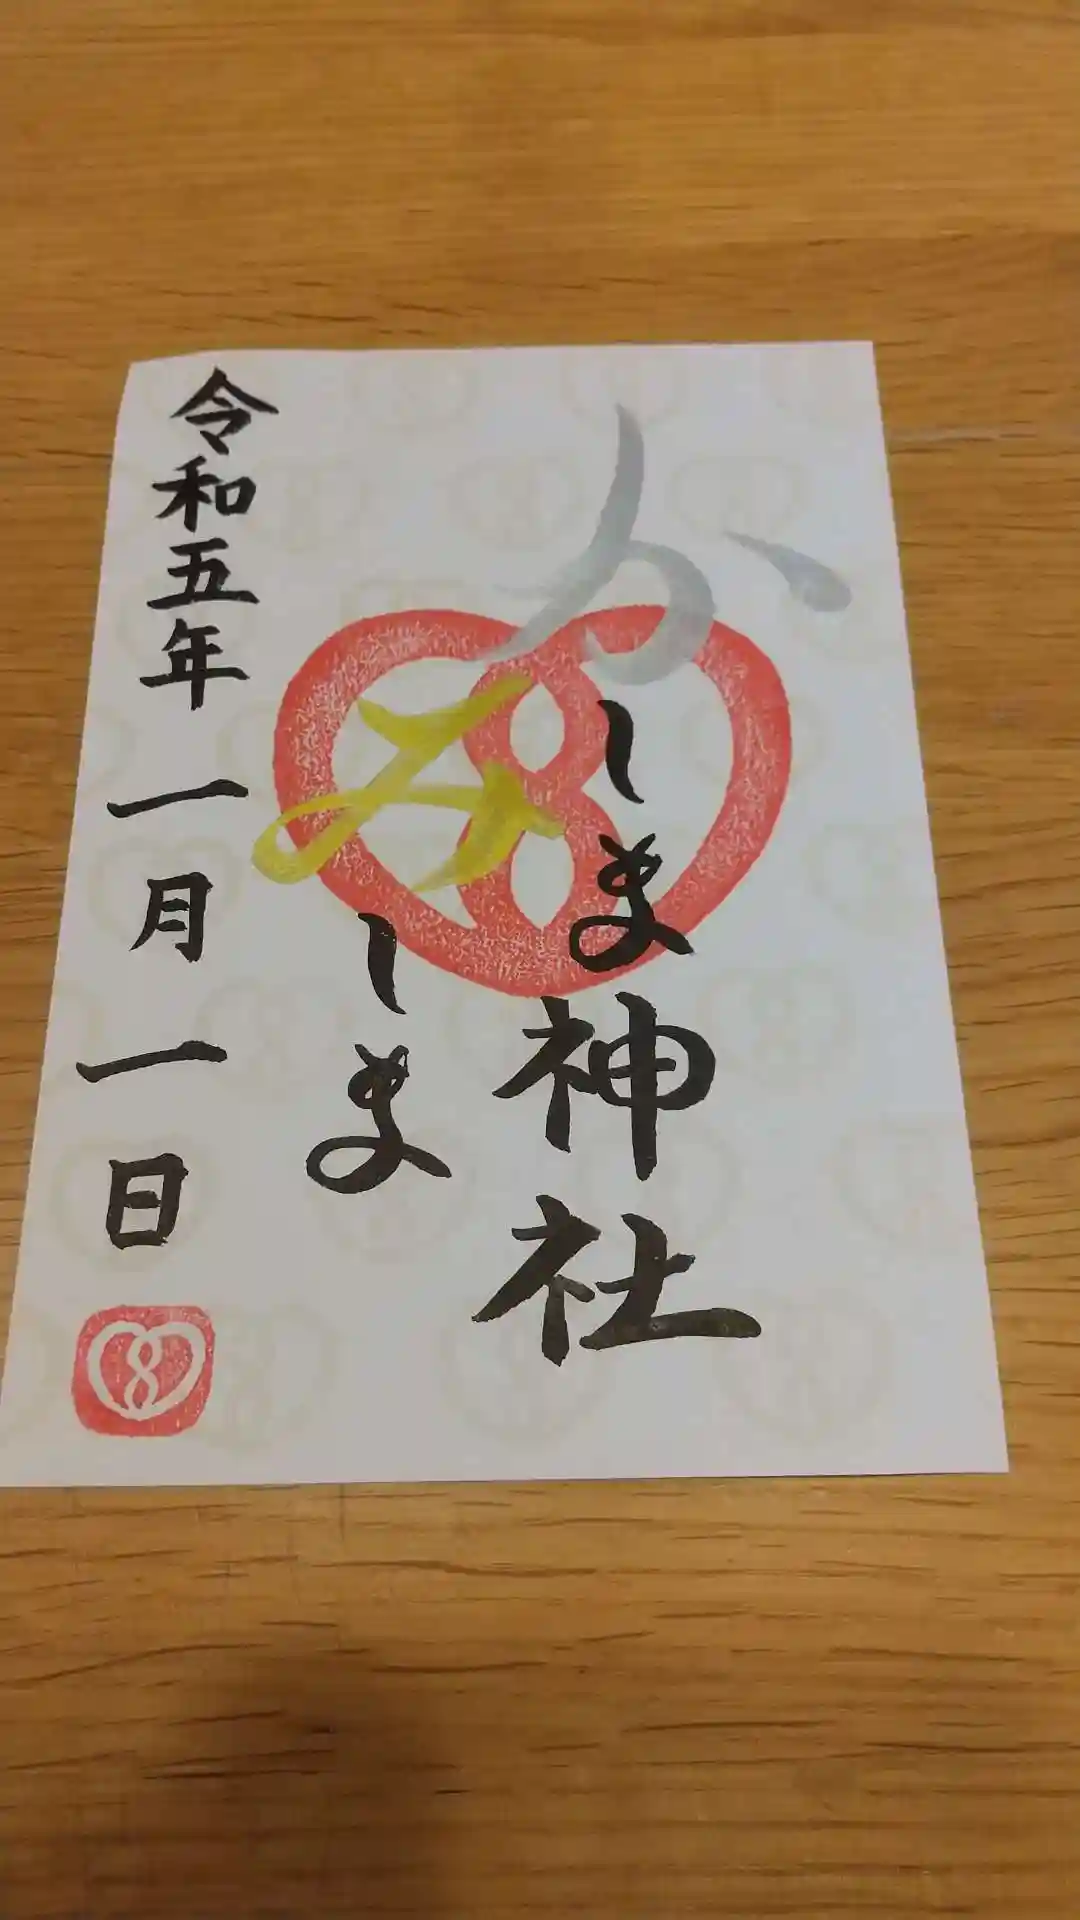 かしま神社
みしま
令和五年一月一日